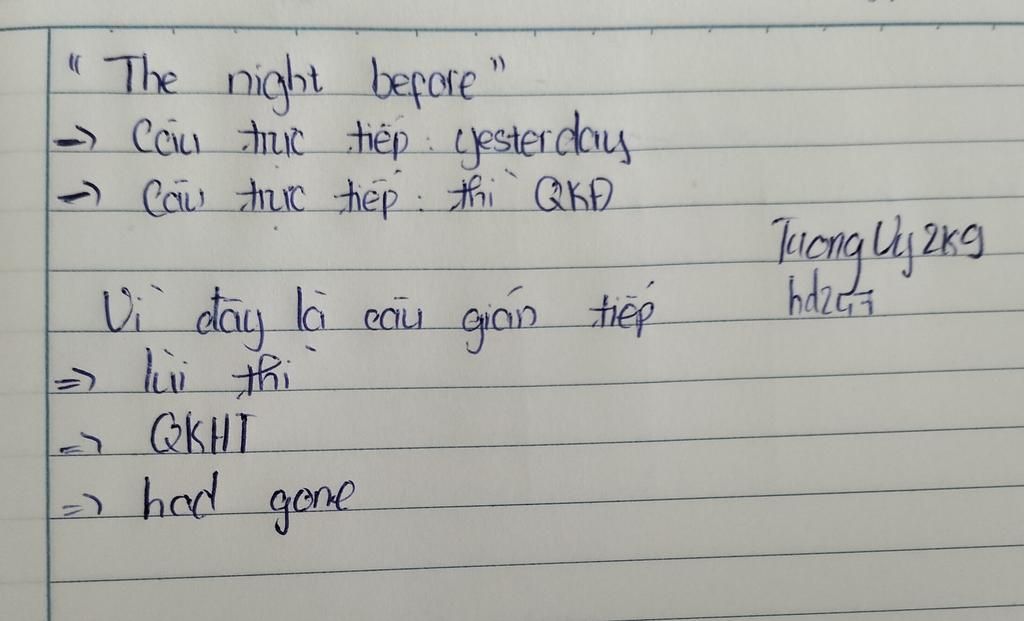 "The night before"
→ Câu trực tiếp: yesterday
→ Câu trực tiếp: thì QKĐ
Tường Vy 2K9
Vì đây là câu gián tiếp
⇒ lùi thì
⇒ QKHT
⇒ had gone